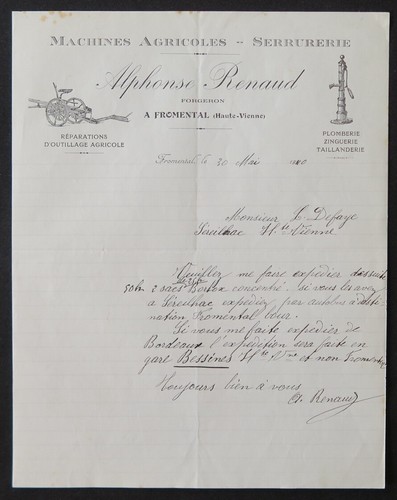 MACHINES AGRICOLES - SERRURERIE
Alphonse Renaud
FORGERON
A FROMENTAL (Haute-Vienne)
RÉPARATIONS
D'OUTILLAGE AGRICOLE
PLOMBERIE
ZINGUERIE
TAILLANDERIE
Fromental, le 20 Mai
Monsieur L. Defaye
Séreilhac Hte Vienne
Veuillez me faire expédier de suite
2 sacs concentré. Si vous les avez
à Séreilhac expédiez par autobus à desti-
nation Fromental tour.
Si vous me faite expédier de
Bordeaux l'expédition sera faite en
gare Bessines Hte Vne et non Fromental
Toujours bien à vous
A. Renaud